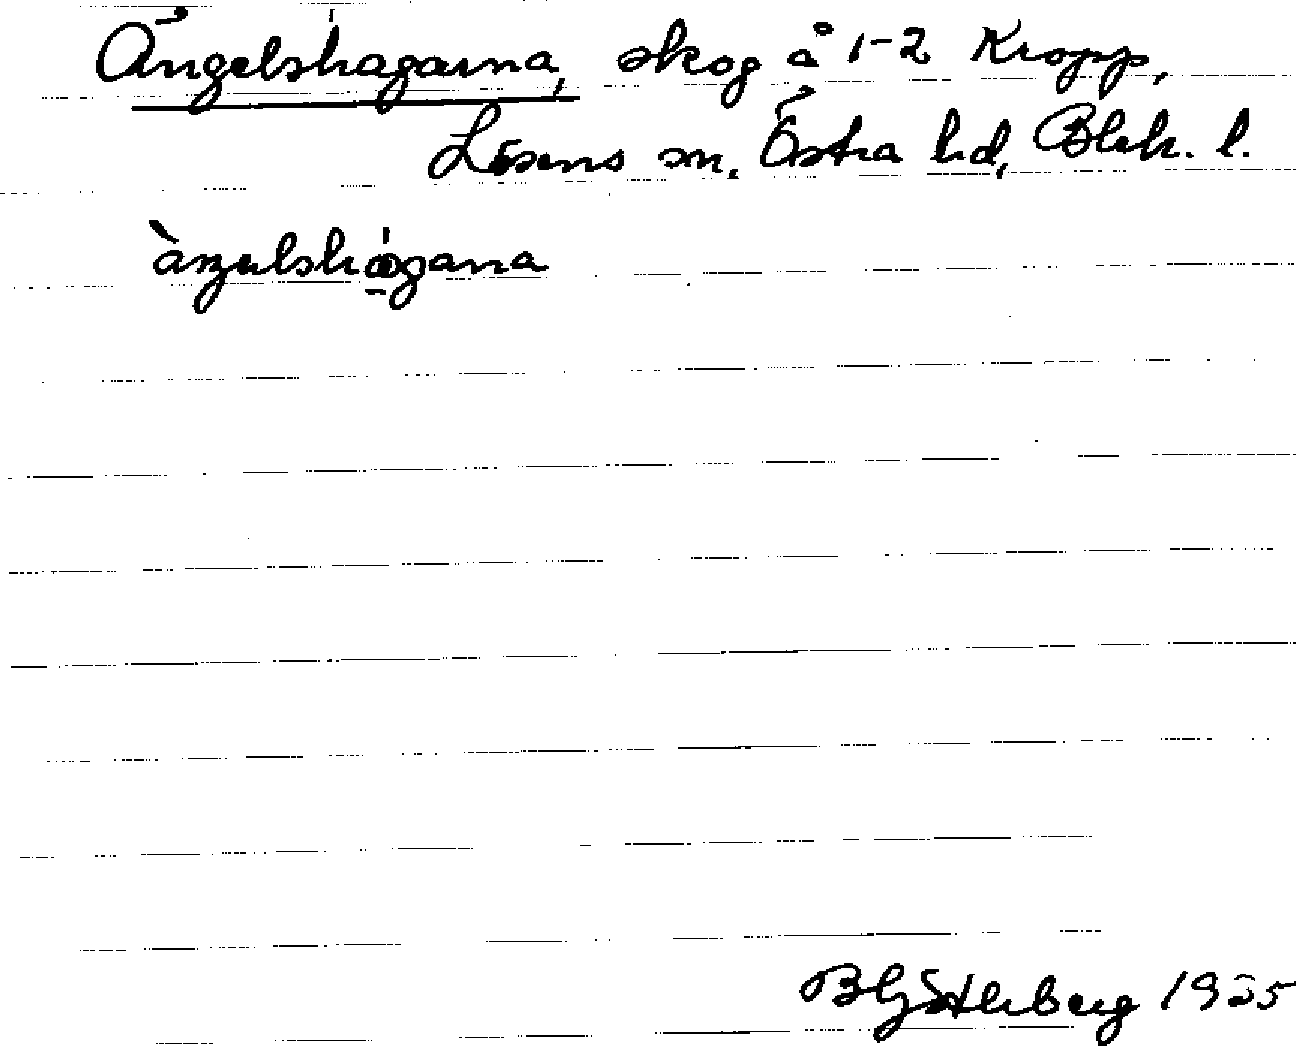 Ängelshagarna, skog å 1-2 Kropp,
Lösens sn, Östra hd, Blek. l.
B Götlerberg 1935